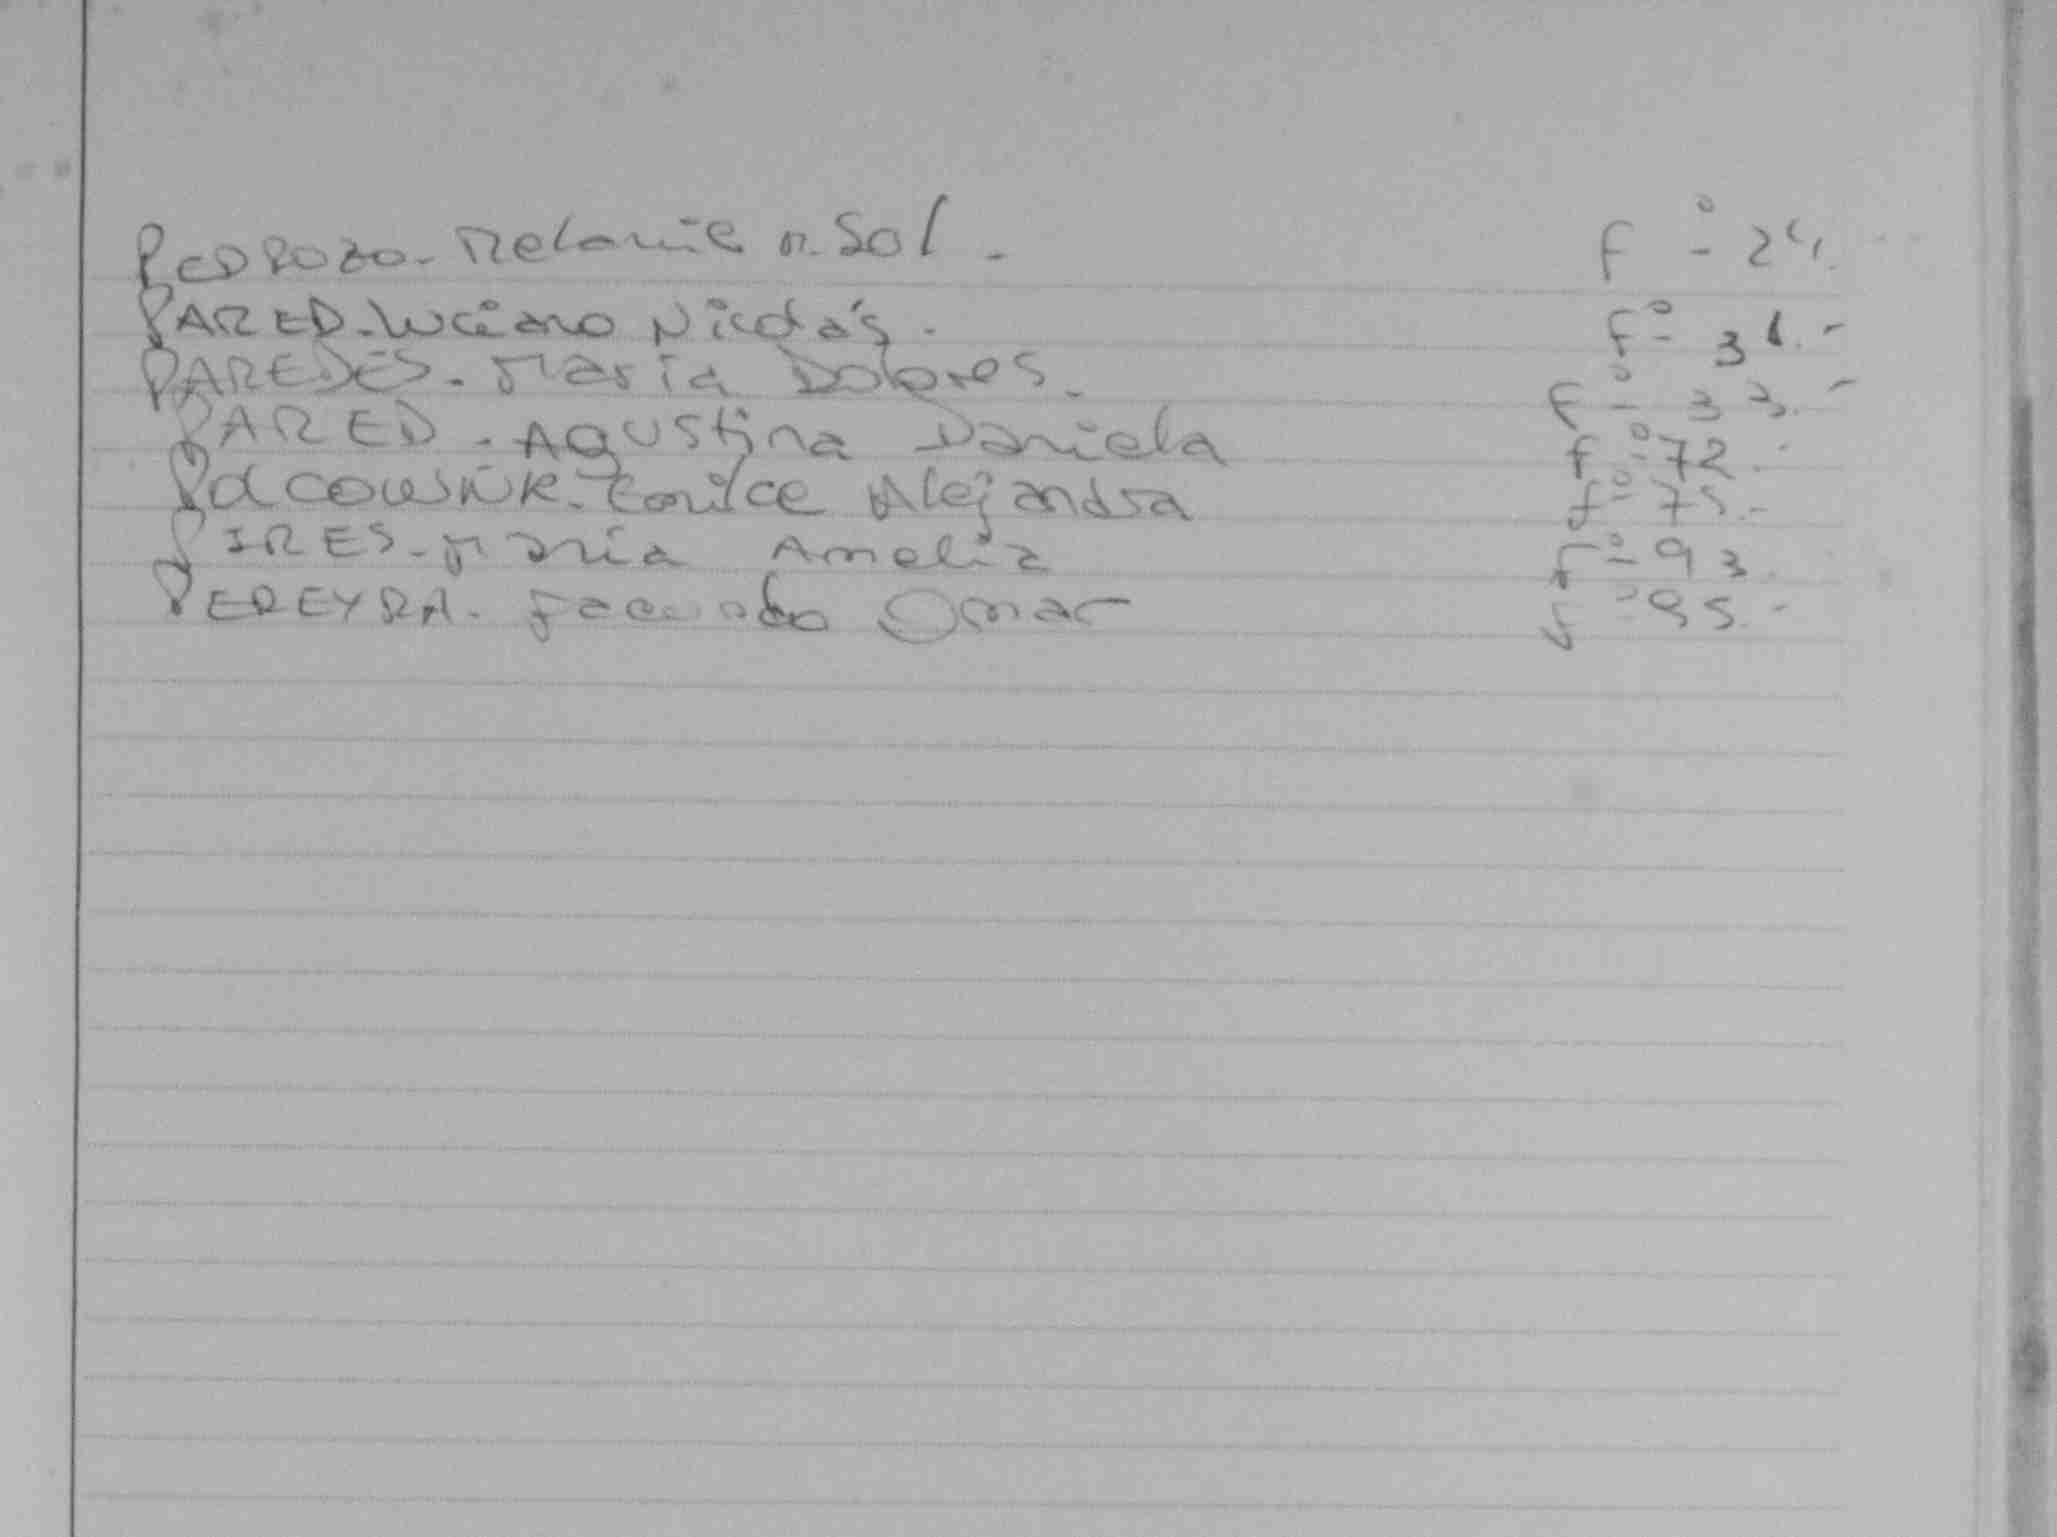 PEDROZO. Melanie M. Sol. fº 24.
PARED. Luciano Nicolás. fº 31.-
PAREDES. Maria Dolores. fº 33.-
PARED. Agustina Daniela fº 72.-
Alejandra fº 75.-
PIRES. Maria Amelia fº 93.
PEREYRA. Facundo Omar fº 95.-